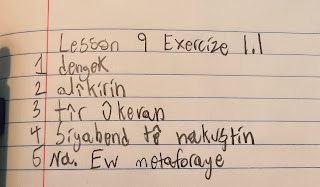 Lesson 9 Exercize 1.1
1 dengek
2 alîkirin
3 tîr û kevan
4 Siyabend tê nakuştin
5 Na. Ew metaforaye